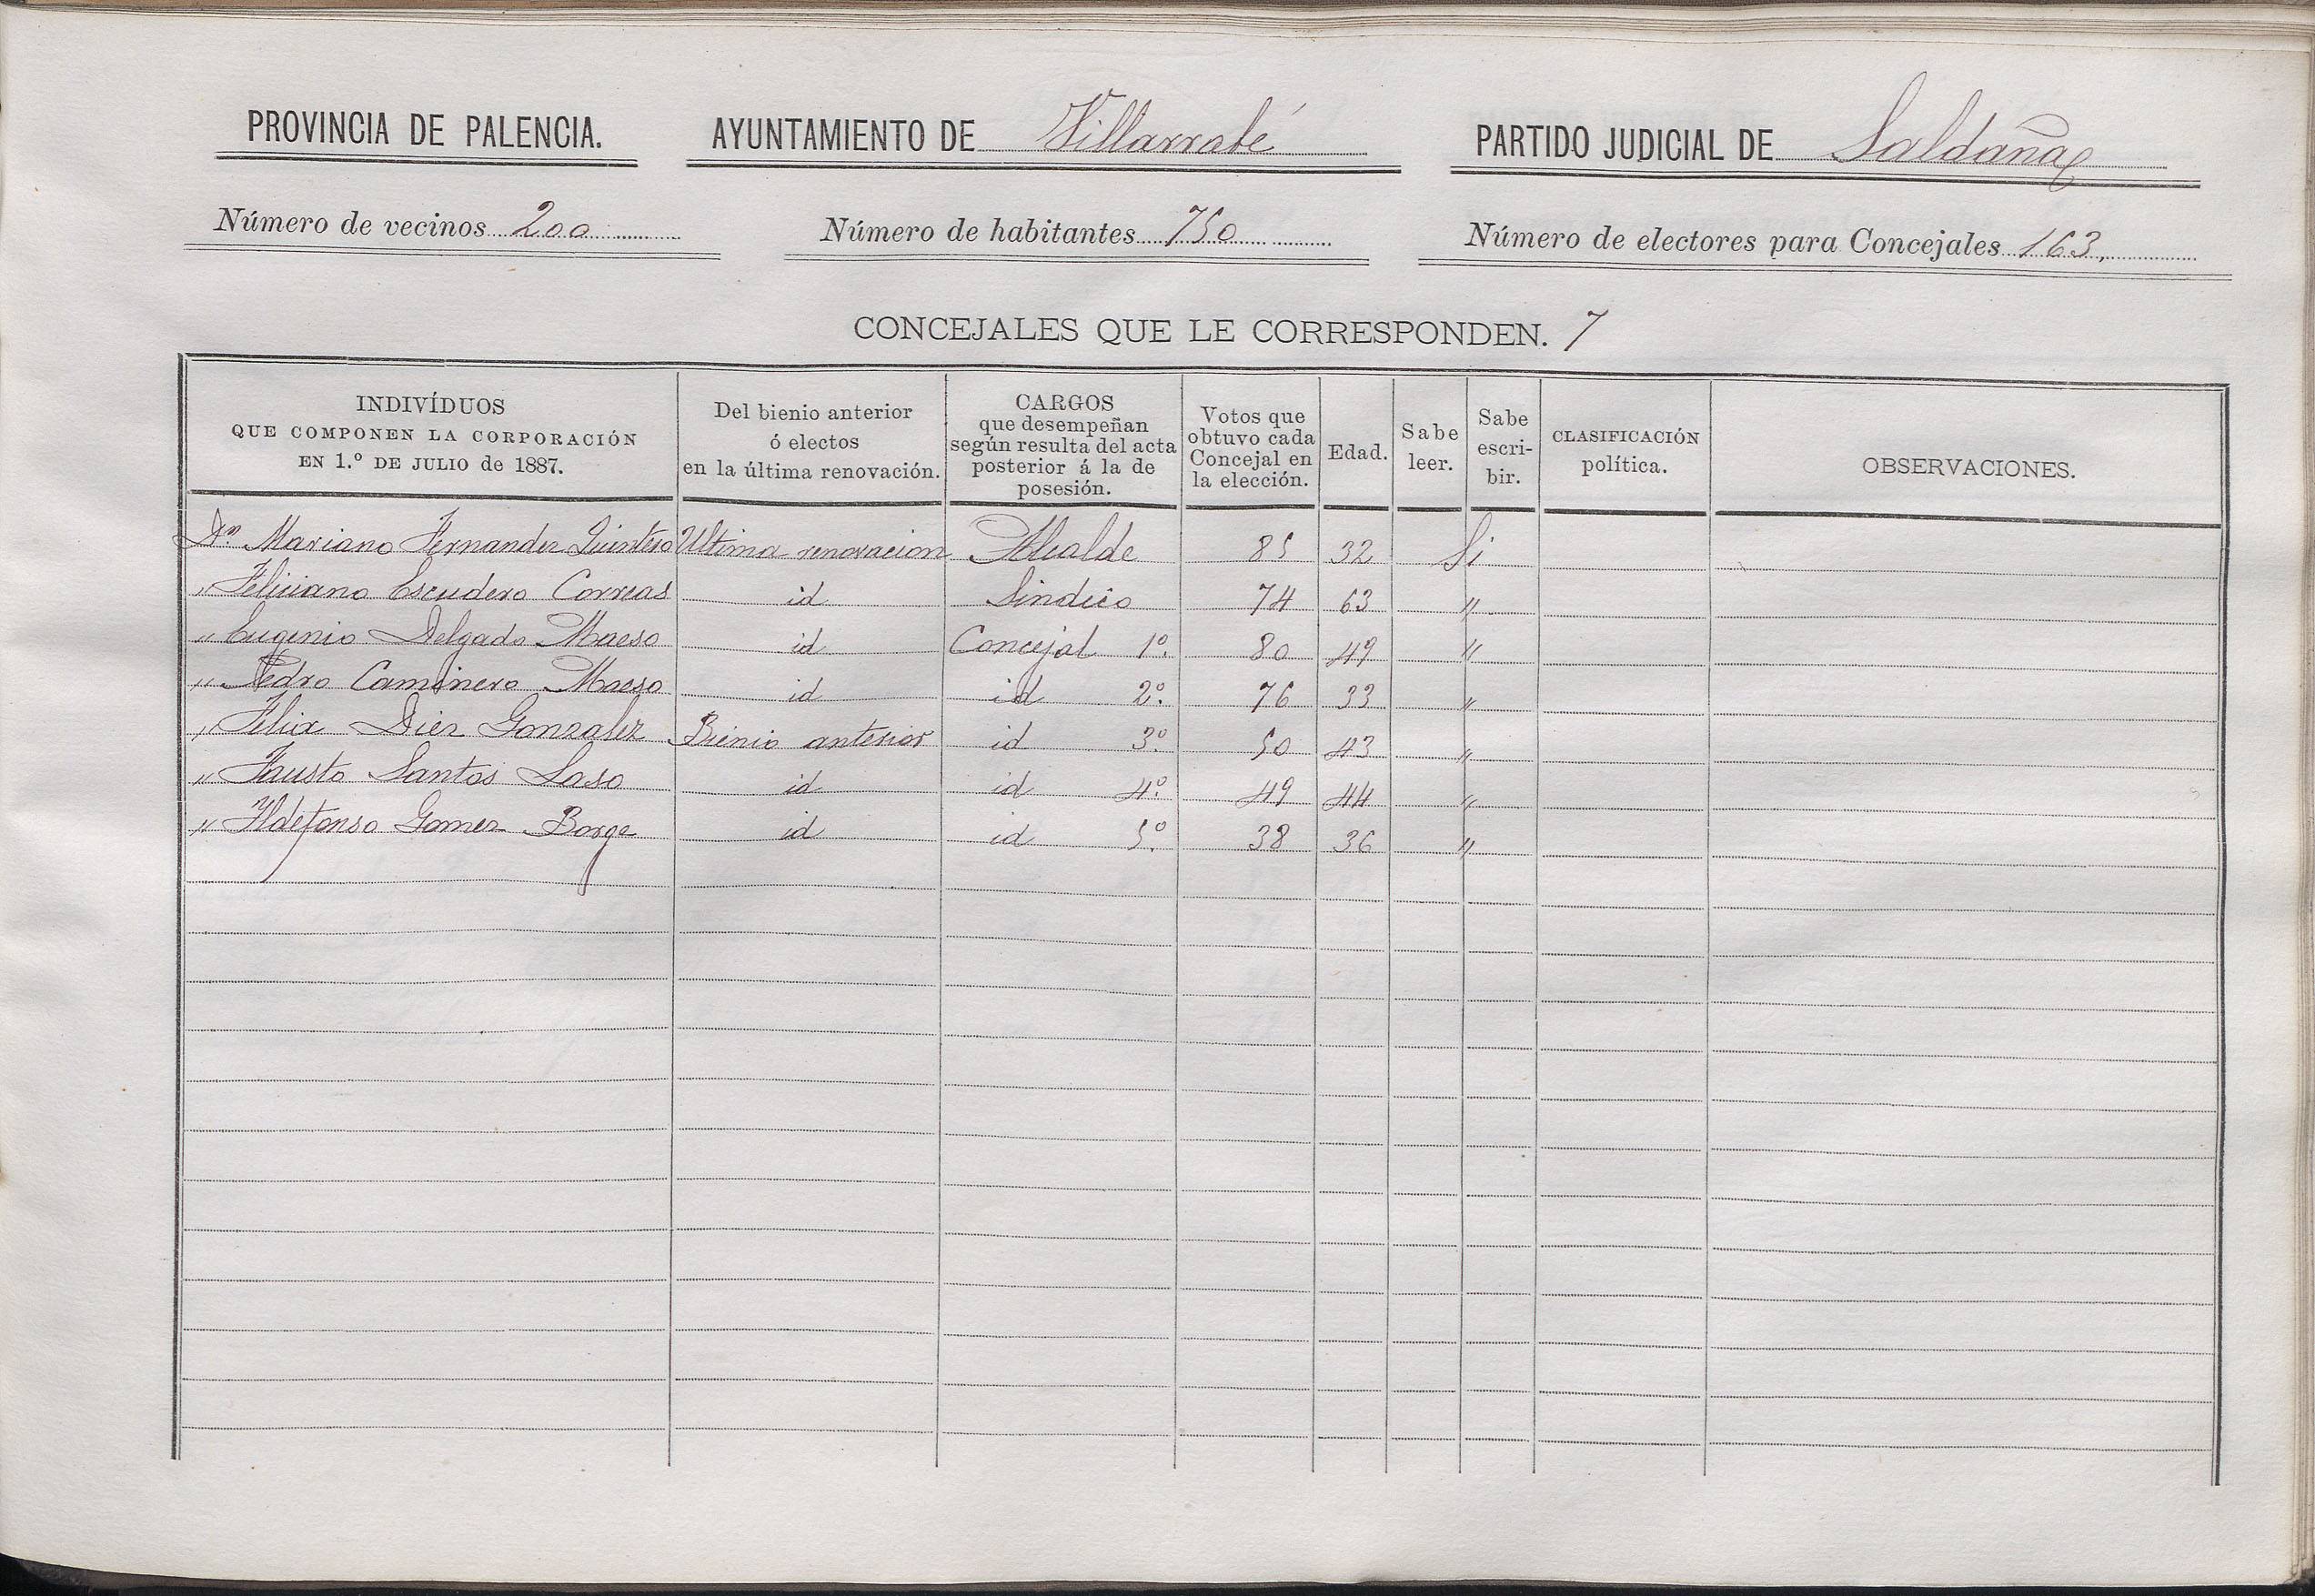 PROVINCIA DE PALENCIA. AYUNTAMIENTO DE Villarrabé PARTIDO JUDICIAL DE Saldaña
Número de vecinos 200 Número de habitantes 750 Número de electores para Concejales 163,
CONCEJALES QUE LE CORRESPONDEN. 7
INDIVÍDUOS
QUE COMPONEN LA CORPORACIÓN
EN 1.º DE JULIO de 1887.
Del bienio anterior
ó electos
en la última renovación.
CARGOS
que desempeñan
según resulta del acta
posterior á la de
posesión.
Votos que
obtuvo cada
Concejal en
la elección.
Edad.
Sabe
leer.
Sabe
escri-
bir.
CLASIFICACIÓN
política.
OBSERVACIONES.
Dn. Mariano Fernandez Quintero Ultima renovacion Alcalde 85 32 Si
" Feliciano Escudero Correas id Sindico 74 63 "
" Eugenio Delgado Maeso id Concejal 1º. 80 49 "
" Pedro Caminero Maeso id id 2º. 76 33 "
" Felix Diez Gonzalez Bienio anterior id 3º. 50 43 "
" Fausto Santos Laso id id 4º. 49 44 "
" Ildefonso Gomez Borge id id 5º. 38 36 "